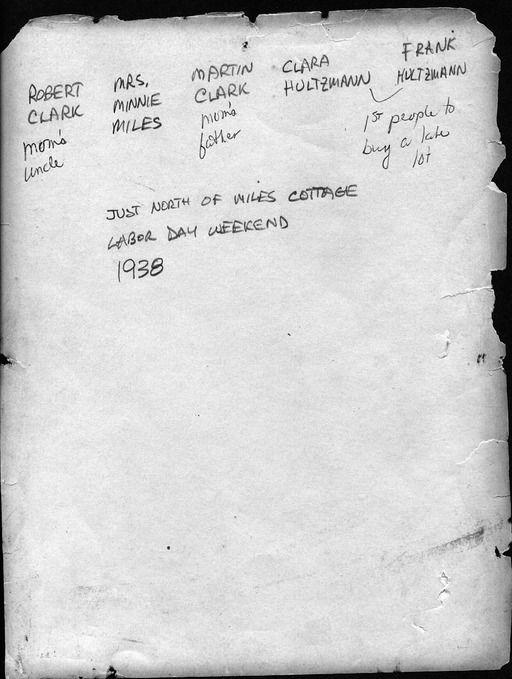 ROBERT
CLARK
mom's
uncle
MRS.
MINNIE
MILES
MARTIN
CLARK
mom's
father
CLARA
HULTZMANN
FRANK
HULTZMANN
1st people to
buy a lake
lot
JUST NORTH OF MILES COTTAGE
LABOR DAY WEEKEND
1938